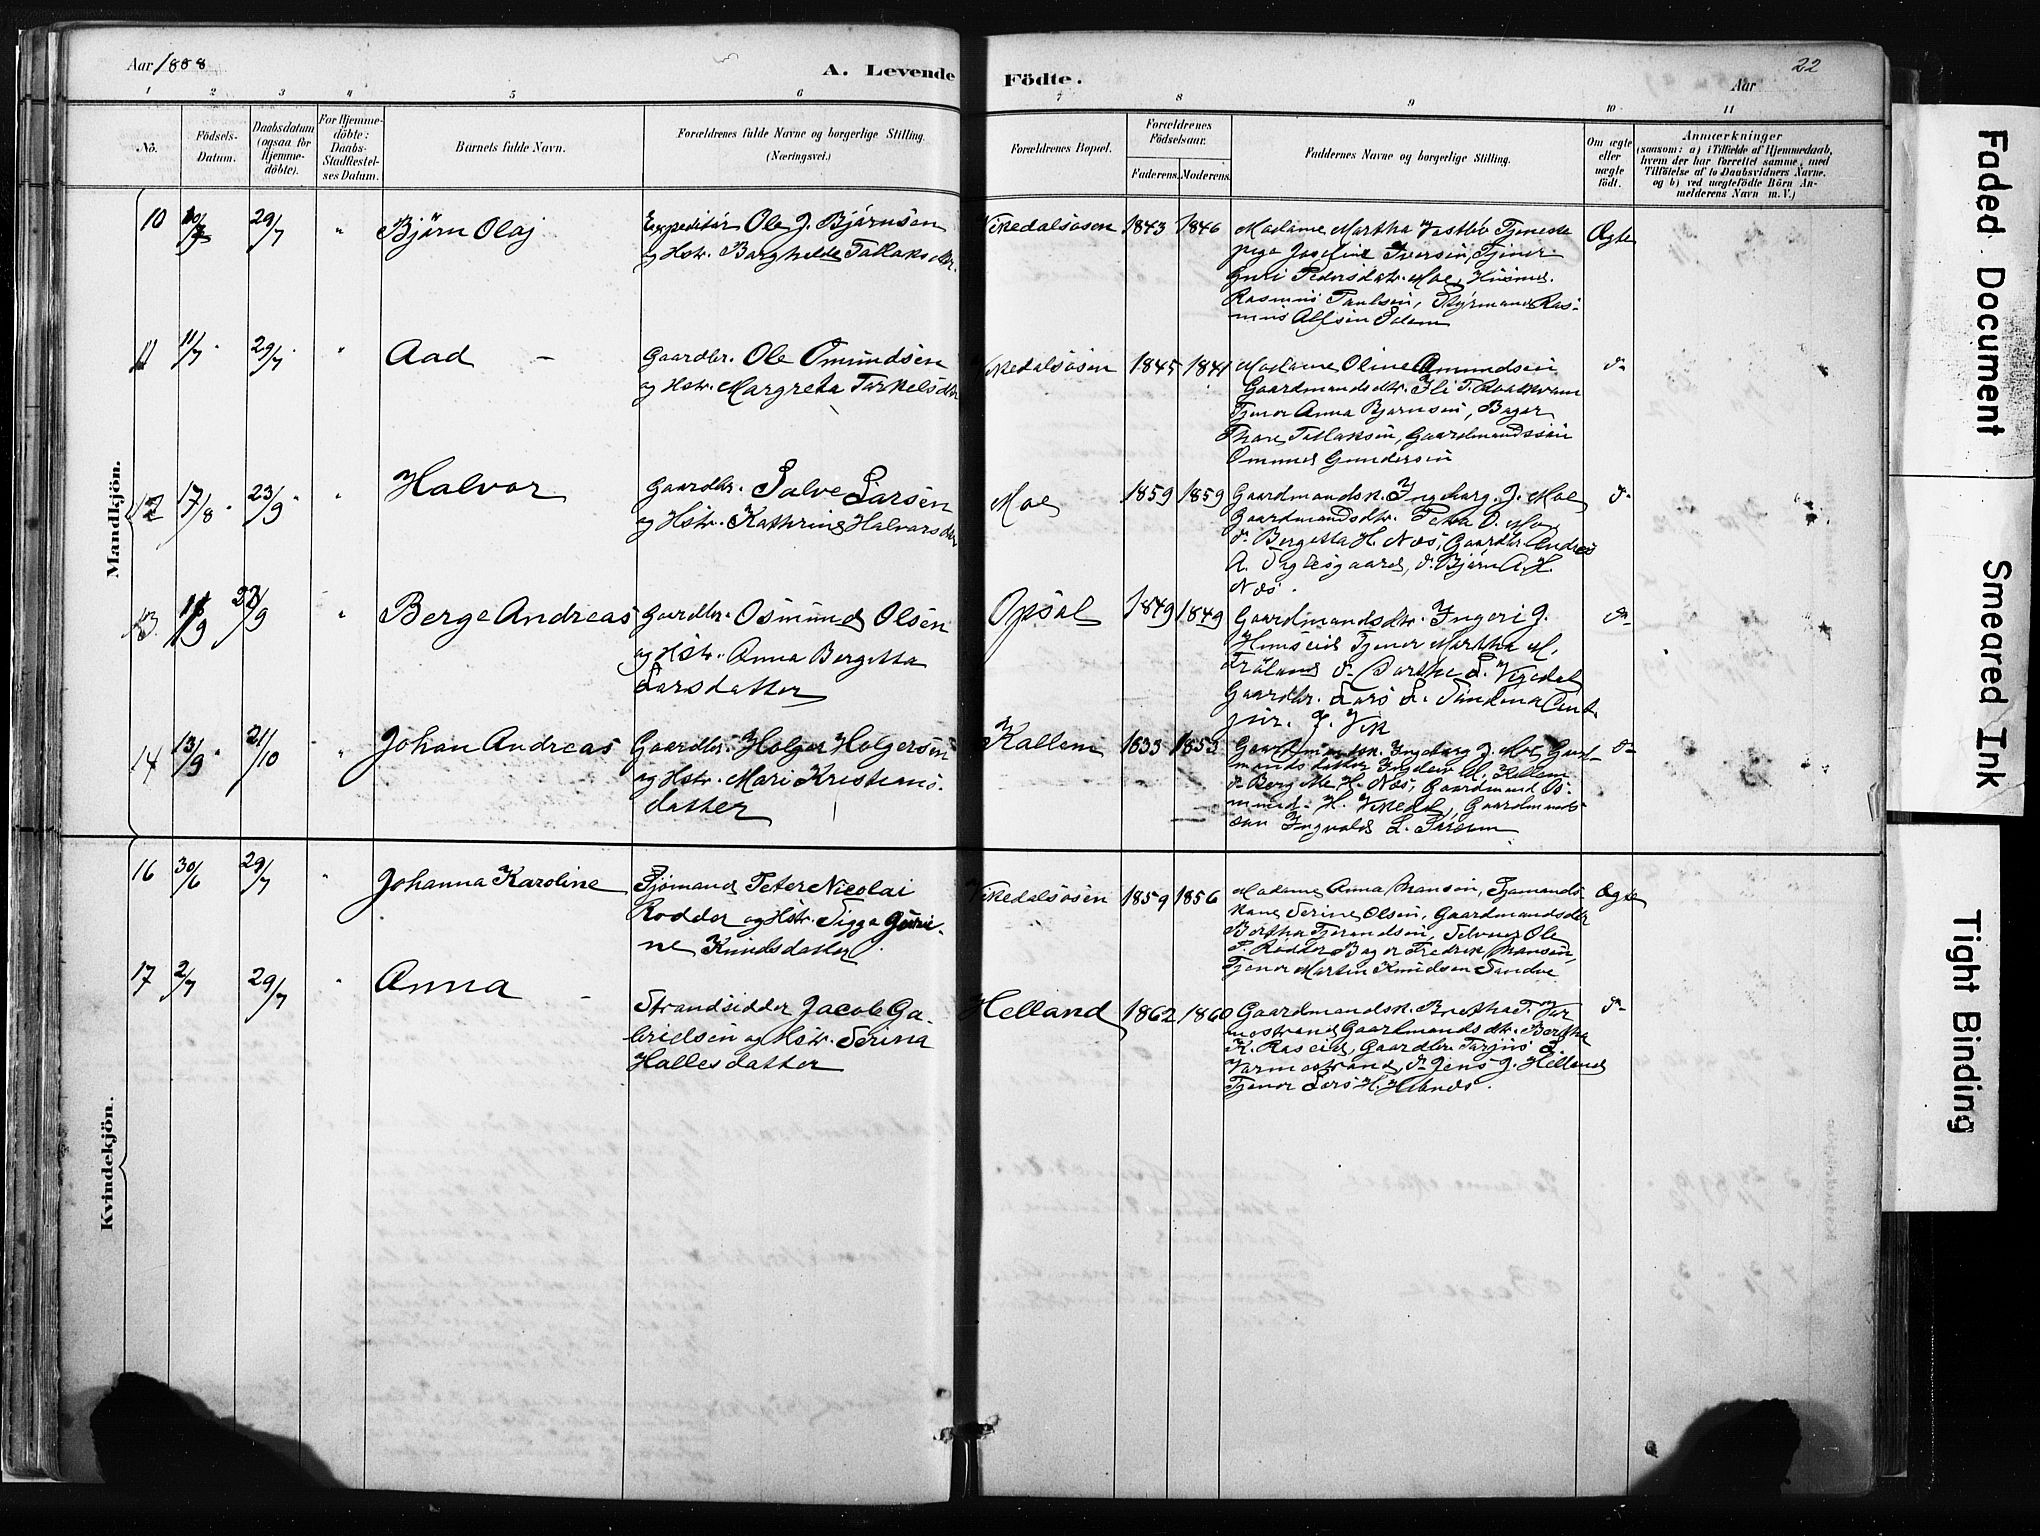 Aar 1888
A. Levende Födte.
22
Aar
1 2 3 4 5 6 7 8 9 10 11
No.
Födsels-Datum.
Daabsdatum (ogsaa for Hjemme-döbte).
For Hjemme-döbte: Daabs-Stadfæstel-ses Datum.
Barnets fulde Navn.
Forældrenes fulde Navne og borgerlige Stilling. (Næringsvei.)
Forældrenes Bopæl.
Forældrenes Födselsaar.
Faderens. Moderens.
Faddernes Navne og borgerlige Stilling.
Om ægte eller uægte födt.
Anmærkninger
(saasom: a) i Tilfælde af Hjemmedaab, hvem der har forrettet samme, med Tilföielse af to Daabsvidners Navne. og b) ved uægtefödte Börn An-melderens Navn m. V.)
Mandkjön.
10 29/7 " Bjørn Olaj
Expeditör Ole J. Bjørnsen
og Hstr. Borghilde Tallaksdtr.
Vikedalsosen 1843 1846
Madame Martha Vestbö Tjeneste
pige Josefine Iversen, Tjener
Guri Pedersdtr. Moe, Husmd.
Rasmus Paulsen, Styrmand Ras-
mus
Ægte
11 11/7 29/7 " Aad
Gaardbr. Ole Omundsen
og Hstr. Margreta Torkelsdtr
Vikedalsosen 1845 1841
Madame Oline Omundsen
Gaardmandsdtr.
Tjener Anna Bjørnsen, Bager
Thore Tallaksen, Gaardmandssön
Ommund Gundersen
do
12 17/8 23/9 " Halvor
Gaardbr. Salve Larsen
og Hstr. Kathrine Halvorsdtr
Moe 1859 1859
Gaardmandsk. Ingeborg J. Moe
Gaardmandsdtr. Petra O. Moe
do Bergetta H. Næs, Gaardbr. Andreas
A. , do Bjørn A. H.
Næs.
do
13 9 23/9 " Berge Andreas
Gaardbr. Osmund Olsen
og Hstr. Anna Bergitta
Larsdatter
Opsal 1849 1849
Gaardmandsdtr. Ingeri J.
Hunseid Tjener Martha M.
do Barthe L. Vigedal
Gaardbr. Lars L.
J. Vik
do
14 13/9 21/10 " Johan Andreas
Gaardbr. Holger Holgersen
og Hstr. Mari Kristens-
datter
Kallem 1855 1853
Gaardmandsk. Ingeborg J. Moe, Gaard-
mandsdatter M. Kallem
do H. Næs, Gaardmand Os-
mund H. Vikedal, Gaardmands
søn Ingvald L.
do
Kvindekjön.
16 30/6 29/7 " Johanna Karoline
Sjömand Peter Nicolai
Rodder og Hstr. Sigga Guri-
ne Knudsdatter
Vikedalsosen 1859 1856
Madame Anna Hansen, Sjømands
kone Serine Olsen, Gaardmandsdtr
Bertha, Ole
P. Rødder Bager Fredrik Hansen,
Tjener Martin Knudsen Sandve
Ægte
17 2/7 29/7 " Anna
Strandsidder Jacob Ga-
brielsen og Hstr. Serina
Hallesdatter
Helland 1862 1860
Gaardmandsk. Bertha T. Vor-
mestrand Gaardmandsdtr. Bertha
K. Raseid, Gaardbr. Torjus
Vormestrand, do Jens J. Helland
Tjener Lars H. Helland.
do
Faded Document
Smeared Ink
Tight Binding